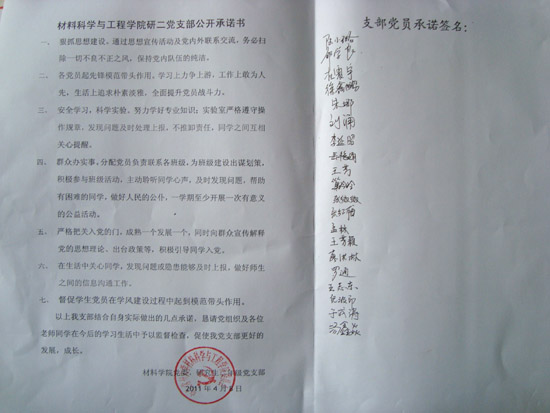 材料科学与工程学院研二党支部公开承诺书
一、 狠抓思想建设,通过思想宣传活动及党内外联系交流,务必扫
除一切不良不正之风,保持党内队伍的纯洁。
二、 各党员起先锋模范带头作用,学习上力争上游,工作上敢为人
先,生活上追求朴素淡雅,全面提升党员战斗力。
三、 安全学习,科学实验,努力学好专业知识;实验室严格遵守操
作规章,发现问题及时处理上报,不推卸责任,同学之间互相
关心提醒。
四、 群众办实事,分配党员负责联系各班级,为班级建设出谋划策,
积极参与班级活动,主动聆听同学心声,及时发现问题,帮助
有困难的同学,做好人民的公仆,一学期至少开展一次有意义
的公益活动。
五、 严格把关入党的门,成熟一个发展一个,同时向群众宣传解释
党的思想理论、出台政策等,积极引导同学入党。
六、 在生活中关心同学,发现问题或隐患能够及时上报,做好师生
之间的信息沟通工作。
七、 督促学生党员在学风建设过程中起到模范带头作用。
以上我支部结合自身实际做出的几点承诺,恳请党组织及各位
老师同学在今后的学习生活中予以监督检查,促使我党支部更好的
发展,成长。
材料学院党委,研究生二年级党支部
2011 年 4 月 6 日
支部党员承诺签名:
朱娜
刘涌
李益留
王芳
孟林
王芳颖
罗迪
王志东